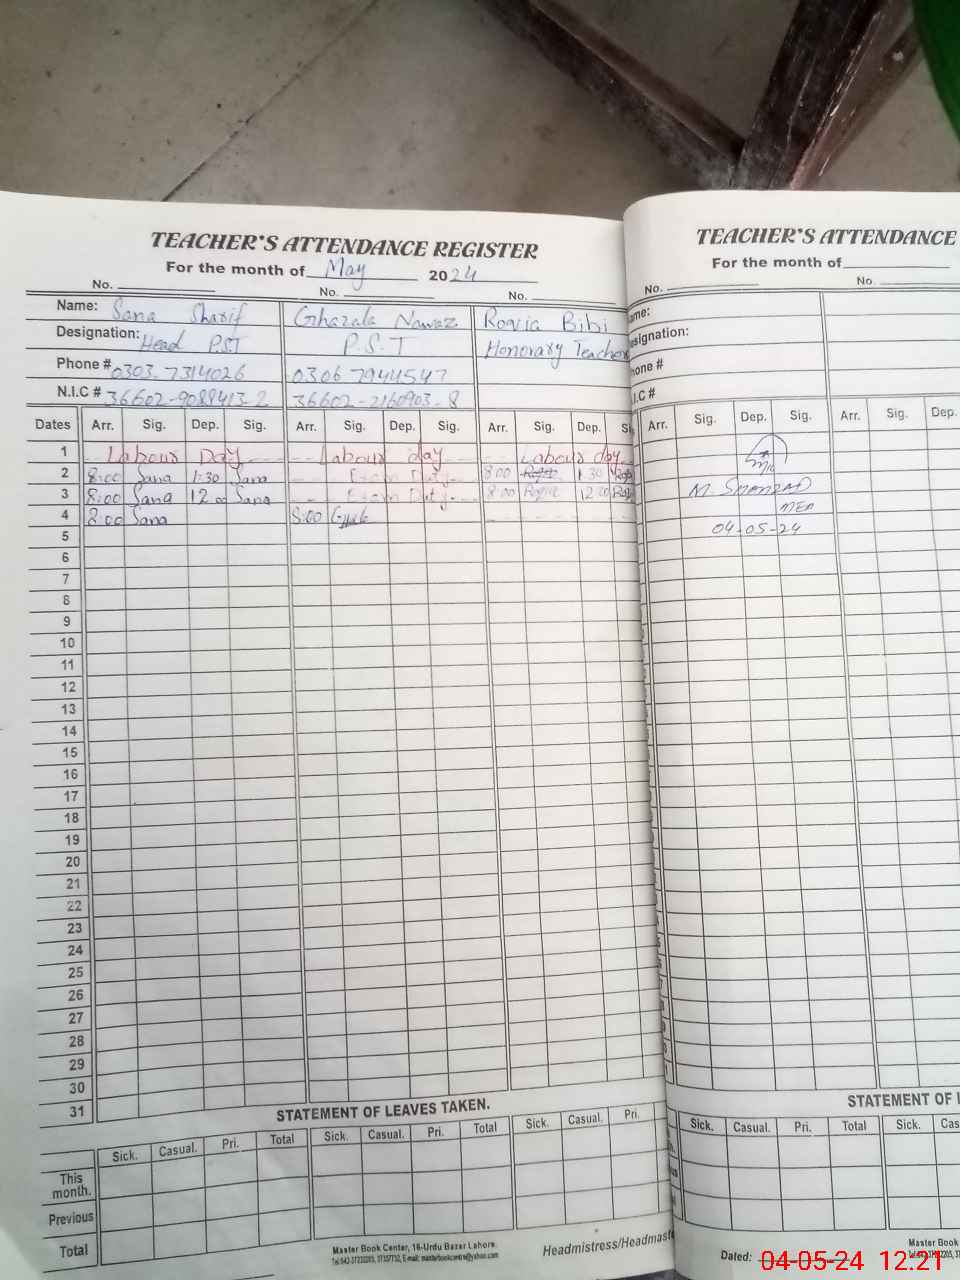 TEACHER'S ATTENDANCE REGISTER
For the month of May 2024
No. No. No.
Name: Sana Sharif Ghazala Nawaz Roqia Bibi
Designation: Head P.S.T P.S.T Honorary Teacher
Phone # 0303-7314026 0306 7944547
N.I.C # 36602-9088413-2 36602-2160903-8
Dates Arr. Sig. Dep. Sig. Arr. Sig. Dep. Sig. Arr. Sig. Dep. Si
1 Labour Day Labour day Labour day
2 8:00 Sana 1:30 Sana Exam Duty 8:00 1:30
3 8:00 Sana 12:00 Sana Exam Duty 8:00 12:00
4 8:00 Sana 8:00
5
6
7
8
9
10
11
12
13
14
15
16
17
18
19
20
21
22
23
24
25
26
27
28
29
30
31
STATEMENT OF LEAVES TAKEN.
Sick. Casual. Pri. Total Sick. Casual. Pri. Total Sick. Casual. Pri.
This month.
Previous
Total
Master Book Center, 16-Urdu Bazar Lahore.
Headmistress/Headmaste
TEACHER'S ATTENDANCE
For the month of
No. No.
ame:
esignation:
hone #
.I.C #
Arr. Sig. Dep. Sig. Arr. Sig. Dep.
M. SHAHZAD
MEA
04-05-24
STATEMENT OF
Sick. Casual. Pri. Total Sick. Cas
Master Book
Dated:
04-05-24 12:21